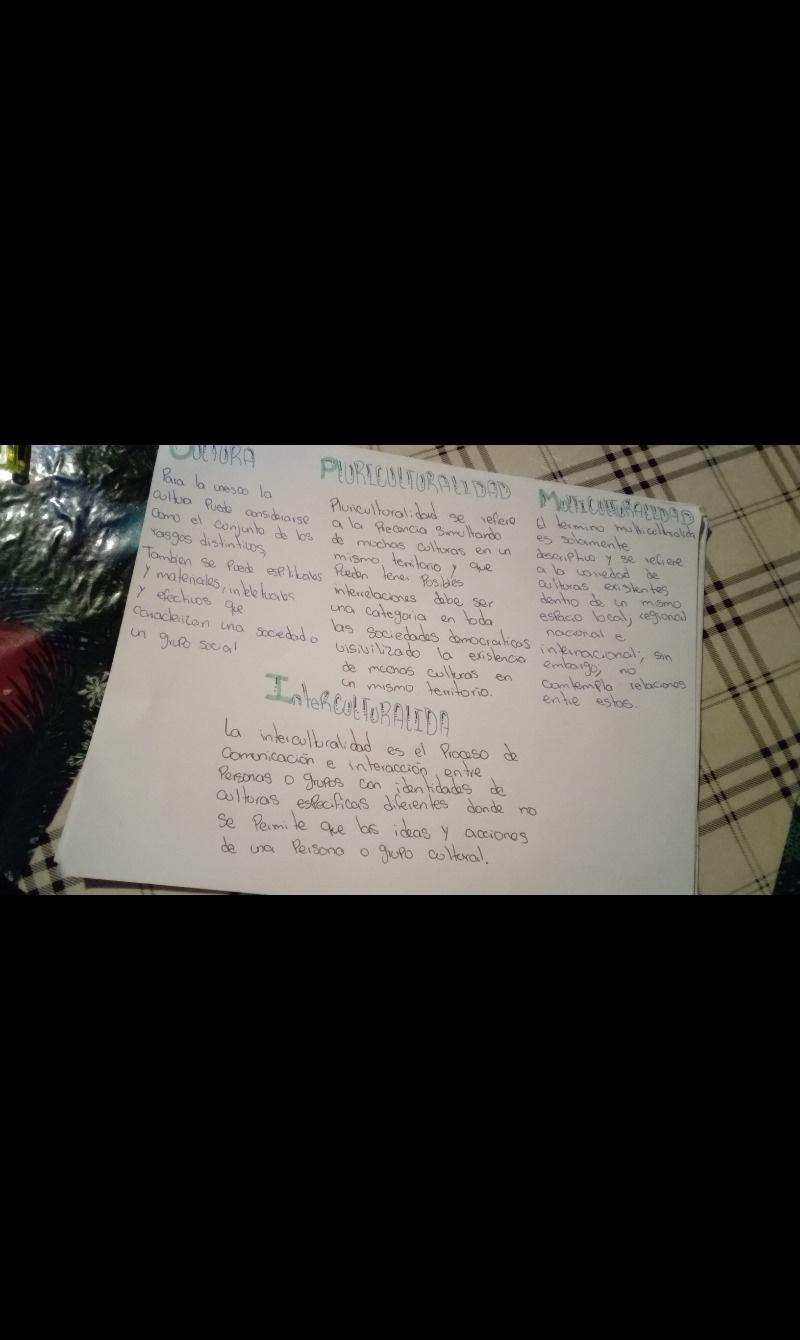 CULTURA
Para la unesco la
cultua Puede considerarse
como el conjunto de los
rasgos distintivos,
Tambien se Puede espiltuales
y materiales, intelctuals
y efectivos que
caractelizan una sociedad o
un grupo social
PLURICULTURALIDAD
Pluriculturalidad se refiere
a la Precancia simultando
de muchas culturas en un
mismo territorio y que
Pueden tener Posibles
interrelaciones debe ser
una categoria en toda
las sociedades democraticas
visivilizado la existencia
de muchas culturas en
un mismo territorio.
MULTICULTURALIDAD
El termino multicultiralidad
es solamente
descriptivo y se refiere
a la variedad de
culturas existentes
dentro de un mismo
espacio local, regional
nacional e
internacional; sin
embargo; no
contempla relaciones
entre estas.
InteRCULTURALIDA
La interculturalidad es el Proceso de
Comunicación e interacción, entre
Personas o grupos con identidades de
culturas especificas diferentes donde no
se Permite que las ideas y acciones
de una Persona o grupo cultural.